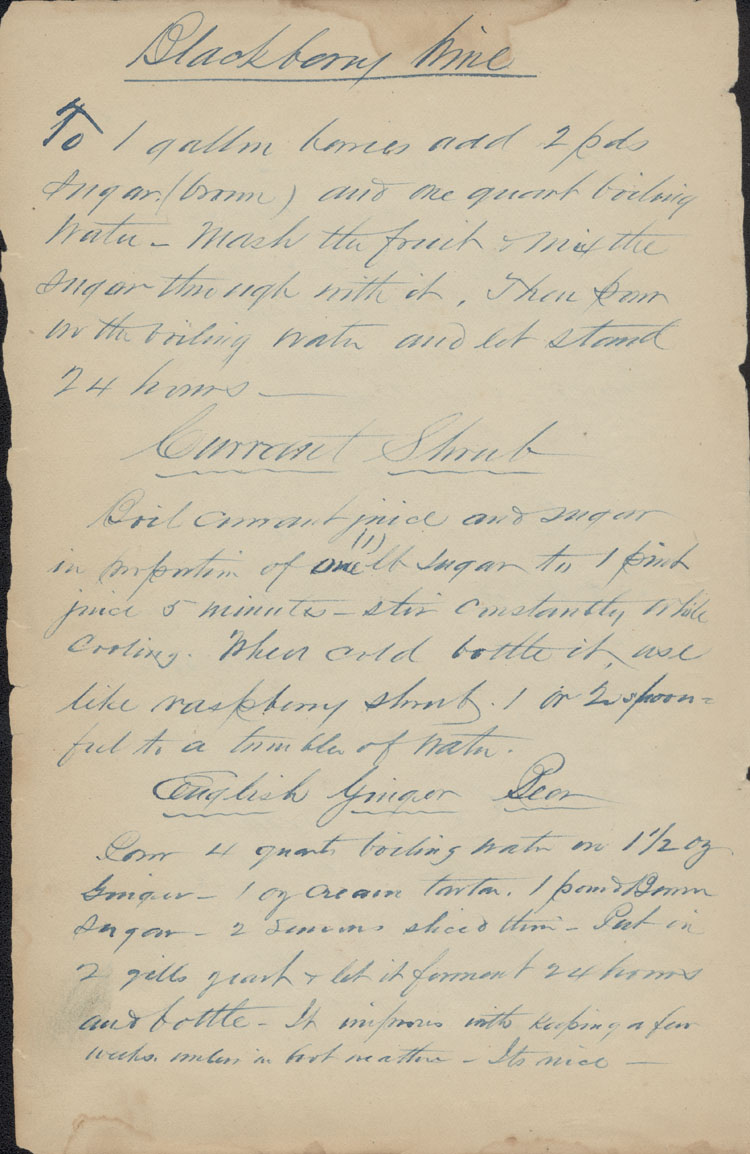 Blackberry Wine
To 1 gallon berries add 2 pds
Sugar (brown) and one quart boiling
Water - Mash the fruit & mix the
Sugar through with it, Then pour
in the boiling water and let stand
24 hours —
Currant Shrub
Boil currant juice and sugar
in proportion of one (1) lb sugar to 1 pint
juice 5 minutes - stir constantly while
cooling. When cold bottle it, use
like raspberry shrub. 1 or 2 spoon=
ful to a tumbler of water.
English Ginger Beer
Pour 4 quarts boiling water on 1 1/2 oz
Ginger - 1 oz cream tartar. 1 pound Brown
Sugar - 2 Lemons sliced thin - Put in
2 gills yeast & let it ferment 24 hours
and bottle - It improves with keeping a few
weeks unless in hot weather - Its nice —